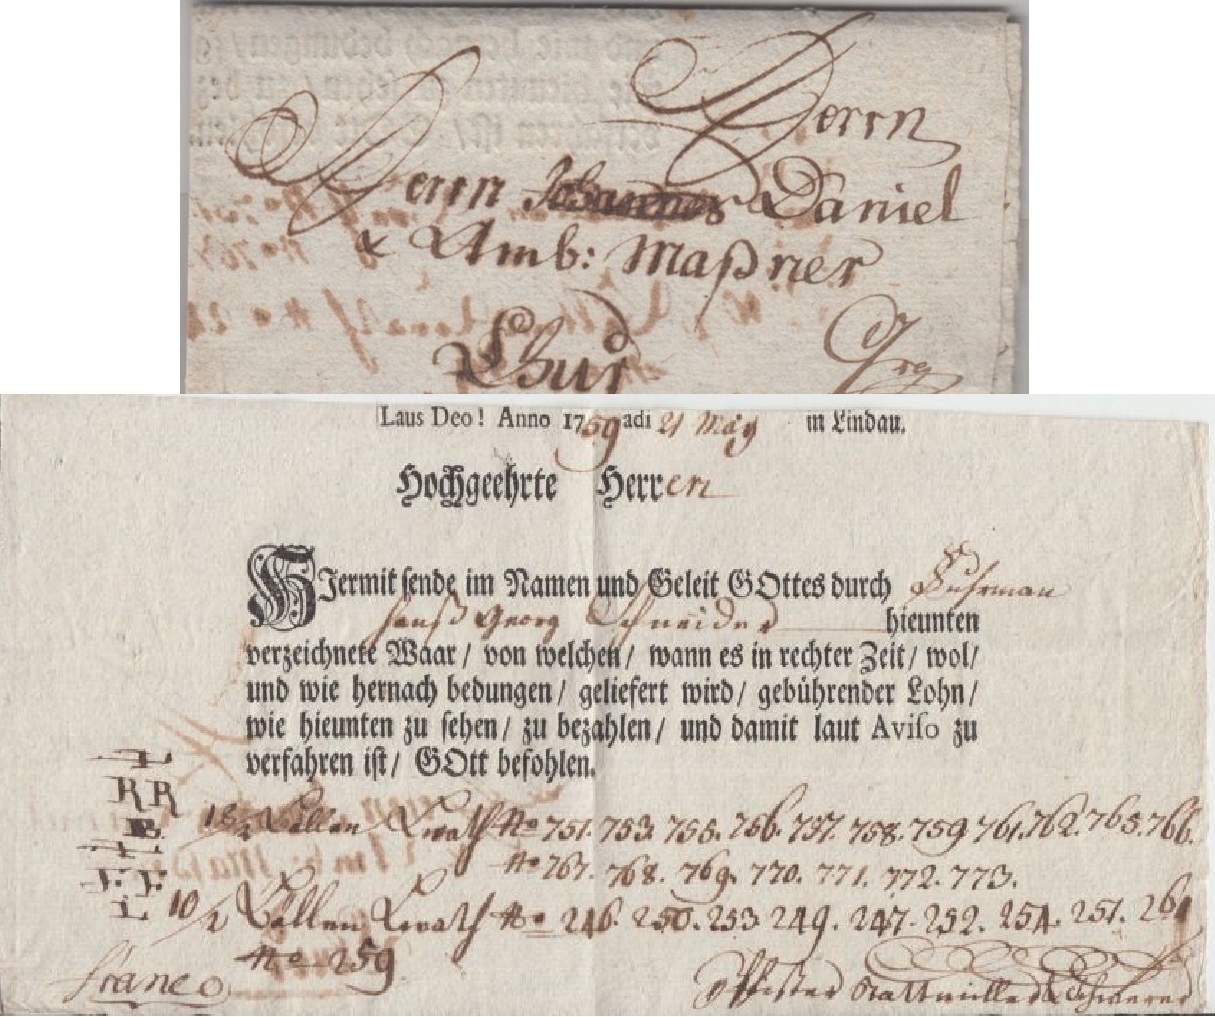 Herrn
Herrn Johannes Daniel
& Amb: Maßner
Chur
Laus Deo! Anno 1759 adi 21 May in Lindau.
Hochgeehrte Herren
HIermit sende im Namen und Geleit GOttes durch Fuhrman
Hanß Georg Schneider hieunten
verzeichnete Waar/ von welchen/ wann es in rechter Zeit/ wol/
und wie hernach bedungen/ geliefert wird/ gebührender Lohn/
wie hieunten zu sehen/ zu bezahlen/ und damit laut Aviso zu
verfahren ist/ GOtt befohlen.
L
RR
18/2 Ballen No 751. 753. 755. 756. 757. 758. 759. 761. 762. 765. 766.
No 767. 768. 769. 770. 771. 772. 773.
F. F
L 10/2 Ballen No 246. 250. 253 249. 247. 252. 254. 251. 261
No 259
franco Pfister